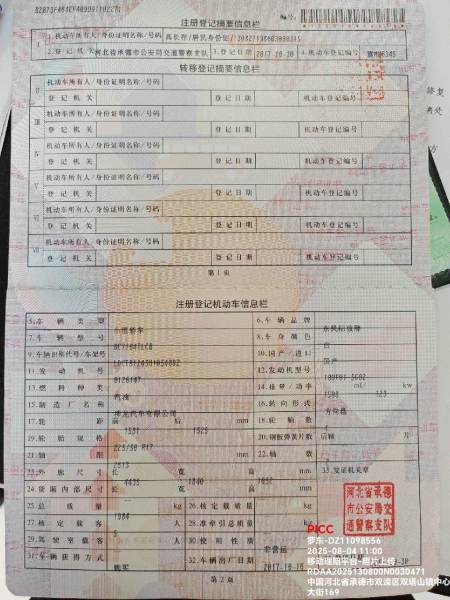 注册登记摘要信息栏
编号:
I
1.机动车所有人/身份证明名称/号码
2.登记机关
河北省承德市公安局交通警察支队
3.登记日期
2017-10-30
4.机动车登记编号
转移登记摘要信息栏
II
机动车所有人/身份证明名称/号码
登记机关
登记日期
机动车登记编号
III
机动车所有人/身份证明名称/号码
登记机关
登记日期
机动车登记编号
IV
机动车所有人/身份证明名称/号码
登记机关
登记日期
机动车登记编号
V
机动车所有人/身份证明名称/号码
登记机关
登记日期
机动车登记编号
VI
机动车所有人/身份证明名称/号码
登记机关
登记日期
机动车登记编号
VII
机动车所有人/身份证明名称/号码
登记机关
登记日期
机动车登记编号
第1页
注册登记机动车信息栏
5.车辆类型
小型轿车
6.车辆品牌
东风标致牌
7.车辆型号
8.车身颜色
白
9.车辆识别代号/车架号
10.国产/进口
国产
11.发动机号
12.发动机型号
13.燃料种类
汽油
14.排量/功率
1598 ml/ 123 kw
15.制造厂名称
神龙汽车有限公司
16.转向形式
方向盘
17.轮距
前 1531 后 1525 mm
18.轮胎数
4
19.轮胎规格
225/50 R17
20.钢板弹簧片数
后轴 片
21.轴距
2613 mm
22.轴数
2
23.外廓尺寸
长 4435 宽 1840 高 mm
33.发证机关章
24.货厢内部尺寸
长 宽 高 mm
25.总质量
kg
26.核定载质量
kg
27.核定载客
5 人
28.准牵引总质量
kg
29.驾驶室载客
人
30.使用性质
非营运
31.车辆获得方式
购买
32.车辆出厂日期
河北省承德
市公安局交
通警察支队
第2页
PICC
罗东-DZ11098556
2025-08-04 11:00
移动理赔平台-照片上传
RDAA2025130800N0030471
中国河北省承德市双滦区双塔山镇中心
大街169